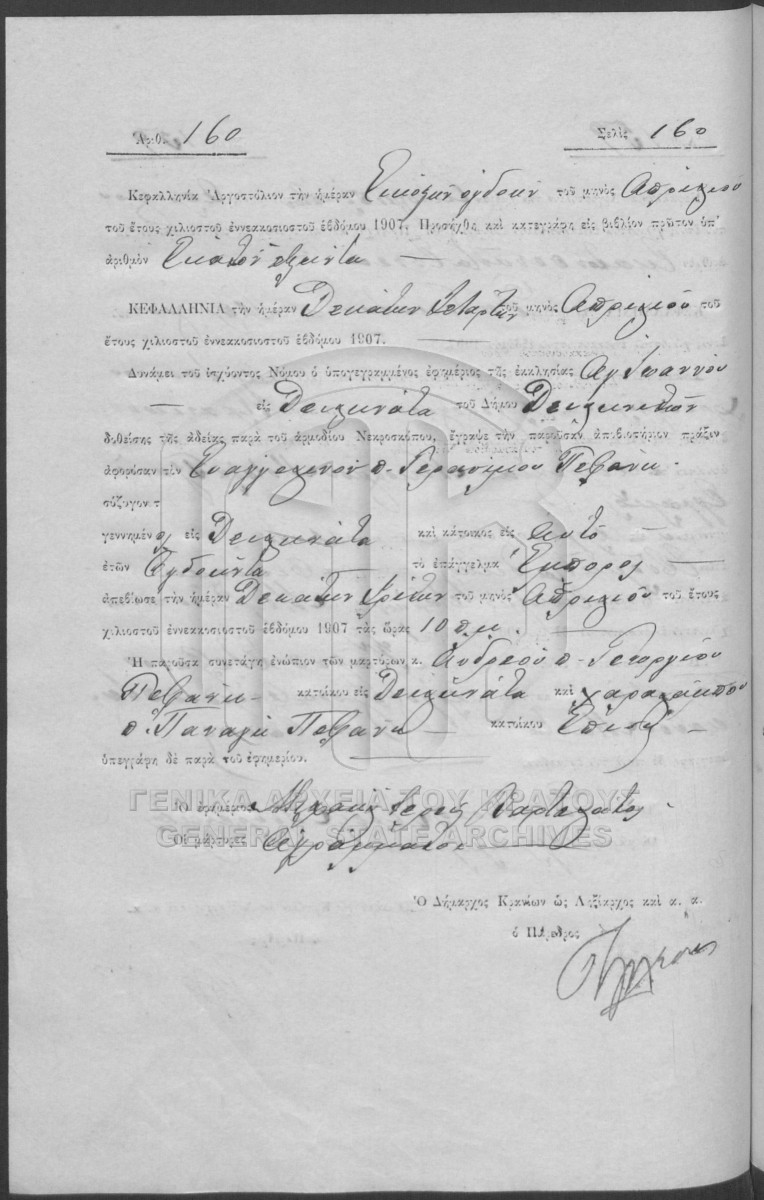 Ἀριθ. 160 Σελὶς 160
Κεφαλληνία Ἀργοστόλιον τὴν ἡμέραν Εικοστήν ογδοήν τοῦ μηνὸς Απριλίου
τοῦ ἔτους χιλιοστοῦ ἐννεακοσιοστοῦ ἑβδόμου 1907. Προσήχθη καὶ κατεγράφη εἰς βιβλίον πρῶτον ὑπ'
ἀριθμὸν Εκατόν εξήντα
ΚΕΦΑΛΛΗΝΙΑ τὴν ἡμέραν Δεκάτην τετάρτην τοῦ μηνὸς Απριλίου τοῦ
ἔτους χιλιοστοῦ ἐννεακοσιοστοῦ ἑβδόμου 1907.
Δυνάμει τοῦ ἰσχύοντος Νόμου ὁ ὑπογεγραμμένος ἐφημέριος τῆς ἐκκλησίας Αγ Ιωάννου
εἰς Δειλινάτα τοῦ Δήμου Δειλινατών
δοθείσης τῆς ἀδείας παρὰ τοῦ ἁρμοδίου Νεκροσκόπου, ἔγραψε τὴν παροῦσαν ἀποβιωτήριον πρᾶξιν
ἀφορῶσαν τὸν Ευαγγελινόν π. Γερασίμου
σύζυγον τ
γεννημέν ον εἰς Δειλινάτα καὶ κάτοικος εἰς αυτό
ἐτῶν Ογδοήντα τὸ ἐπάγγελμα Έμπορος
ἀπεβίωσε τὴν ἡμέραν Δεκάτην τρίτην τοῦ μηνὸς Απριλίου τοῦ ἔτους
χιλιοστοῦ ἐννεακοσιοστοῦ ἑβδόμου 1907 τὰς ὥρας 10 π.μ.
Ἡ παροῦσα συνετάγη ἐνώπιον τῶν μαρτύρων κ. Ανδρέου π. Γεωργίου
κατοίκου εἰς Δειλινάτα καὶ Χαραλάμπου
π. Παναγή κατοίκου
ὑπεγράφη δὲ παρὰ τοῦ ἐφημερίου.
ΓΕΝΙΚΑ ΑΡΧΕΙΑ ΤΟΥ ΚΡΑΤΟΥΣ
Ὁ ἐφημέριος Μιχαήλ Ιερεύς
GENERAL STATE ARCHIVES
Οἱ μάρτυρες Αγράμματοι
Ὁ Δήμαρχος Κρανίων ὡς Ληξίαρχος καὶ α. α.
ὁ Πάρεδρος